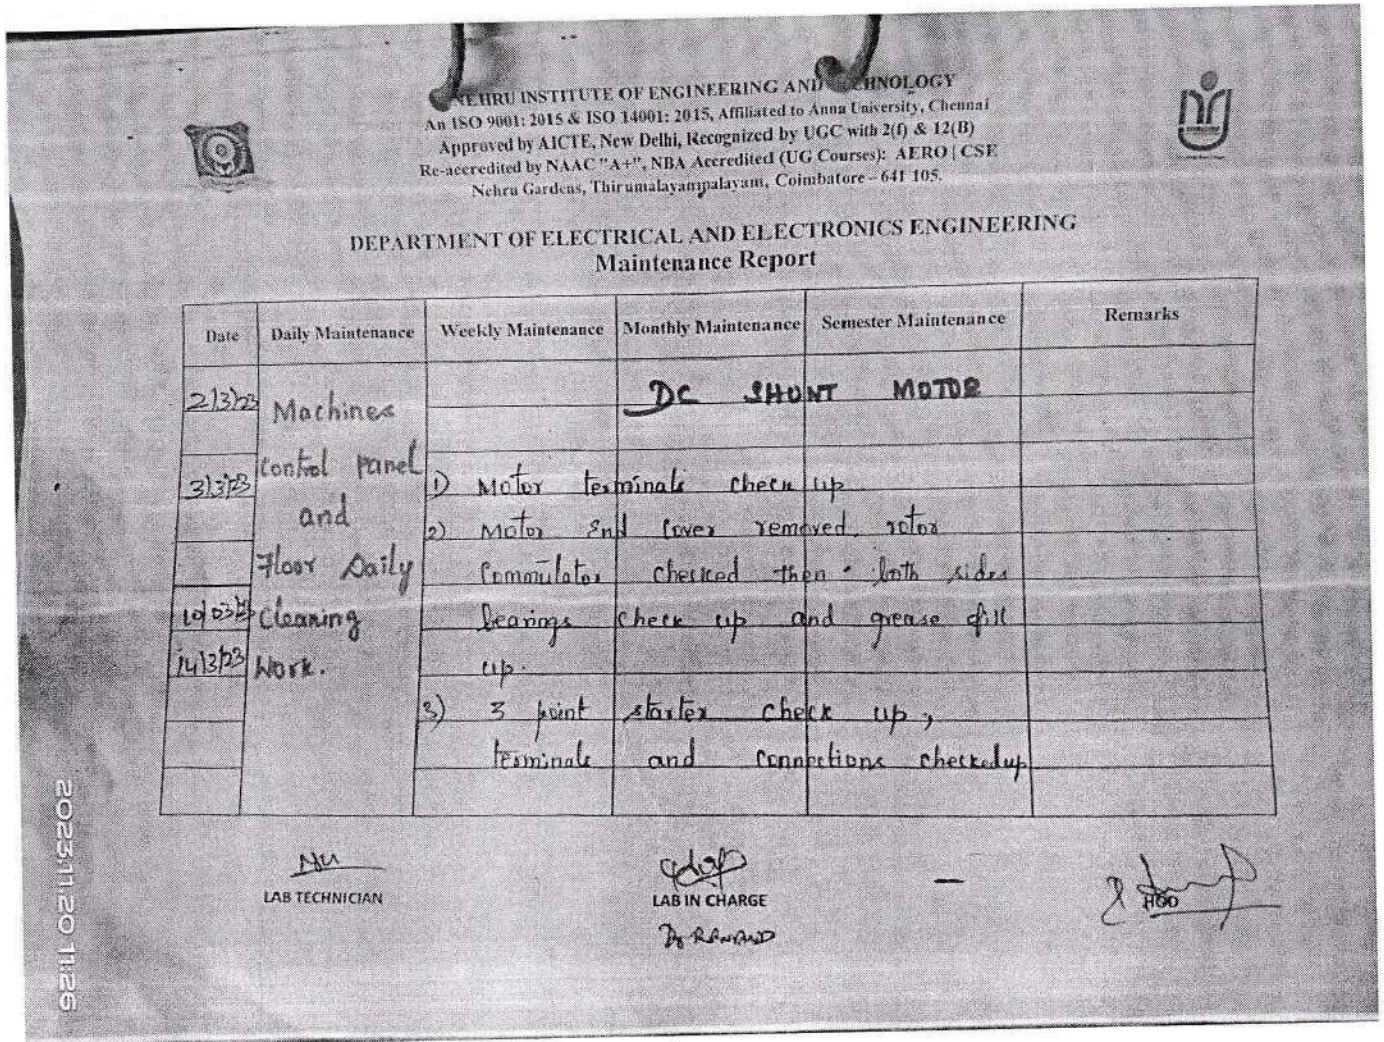 NEHRU INSTITUTE OF ENGINEERING AND TECHNOLOGY
An ISO 9001: 2015 & ISO 14001: 2015, Affiliated to Anna University, Chennai
Approved by AICTE, New Delhi, Recognized by UGC with 2(f) & 12(B)
Re-accredited by NAAC "A+", NBA Accredited (UG Courses): AERO | CSE
Nehru Gardens, Thirumalayampalayam, Coimbatore – 641 105.
DEPARTMENT OF ELECTRICAL AND ELECTRONICS ENGINEERING
Maintenance Report
Date Daily Maintenance Weekly Maintenance Monthly Maintenance Semester Maintenance Remarks
2/3/23 Machines DC SHUNT MOTOR
control panel
3/3/23 1) Motor terminals check up
and 2) Motor End Cover removed. rotor
Floor Daily Commulator checked then both sides
10/03/23 Cleaning bearings check up and grease fill
14/3/23 Work. up.
3) 3 point starter check up,
terminals and connections checkedup
LAB TECHNICIAN
LAB IN CHARGE
HOD
2023.11.20 11:26